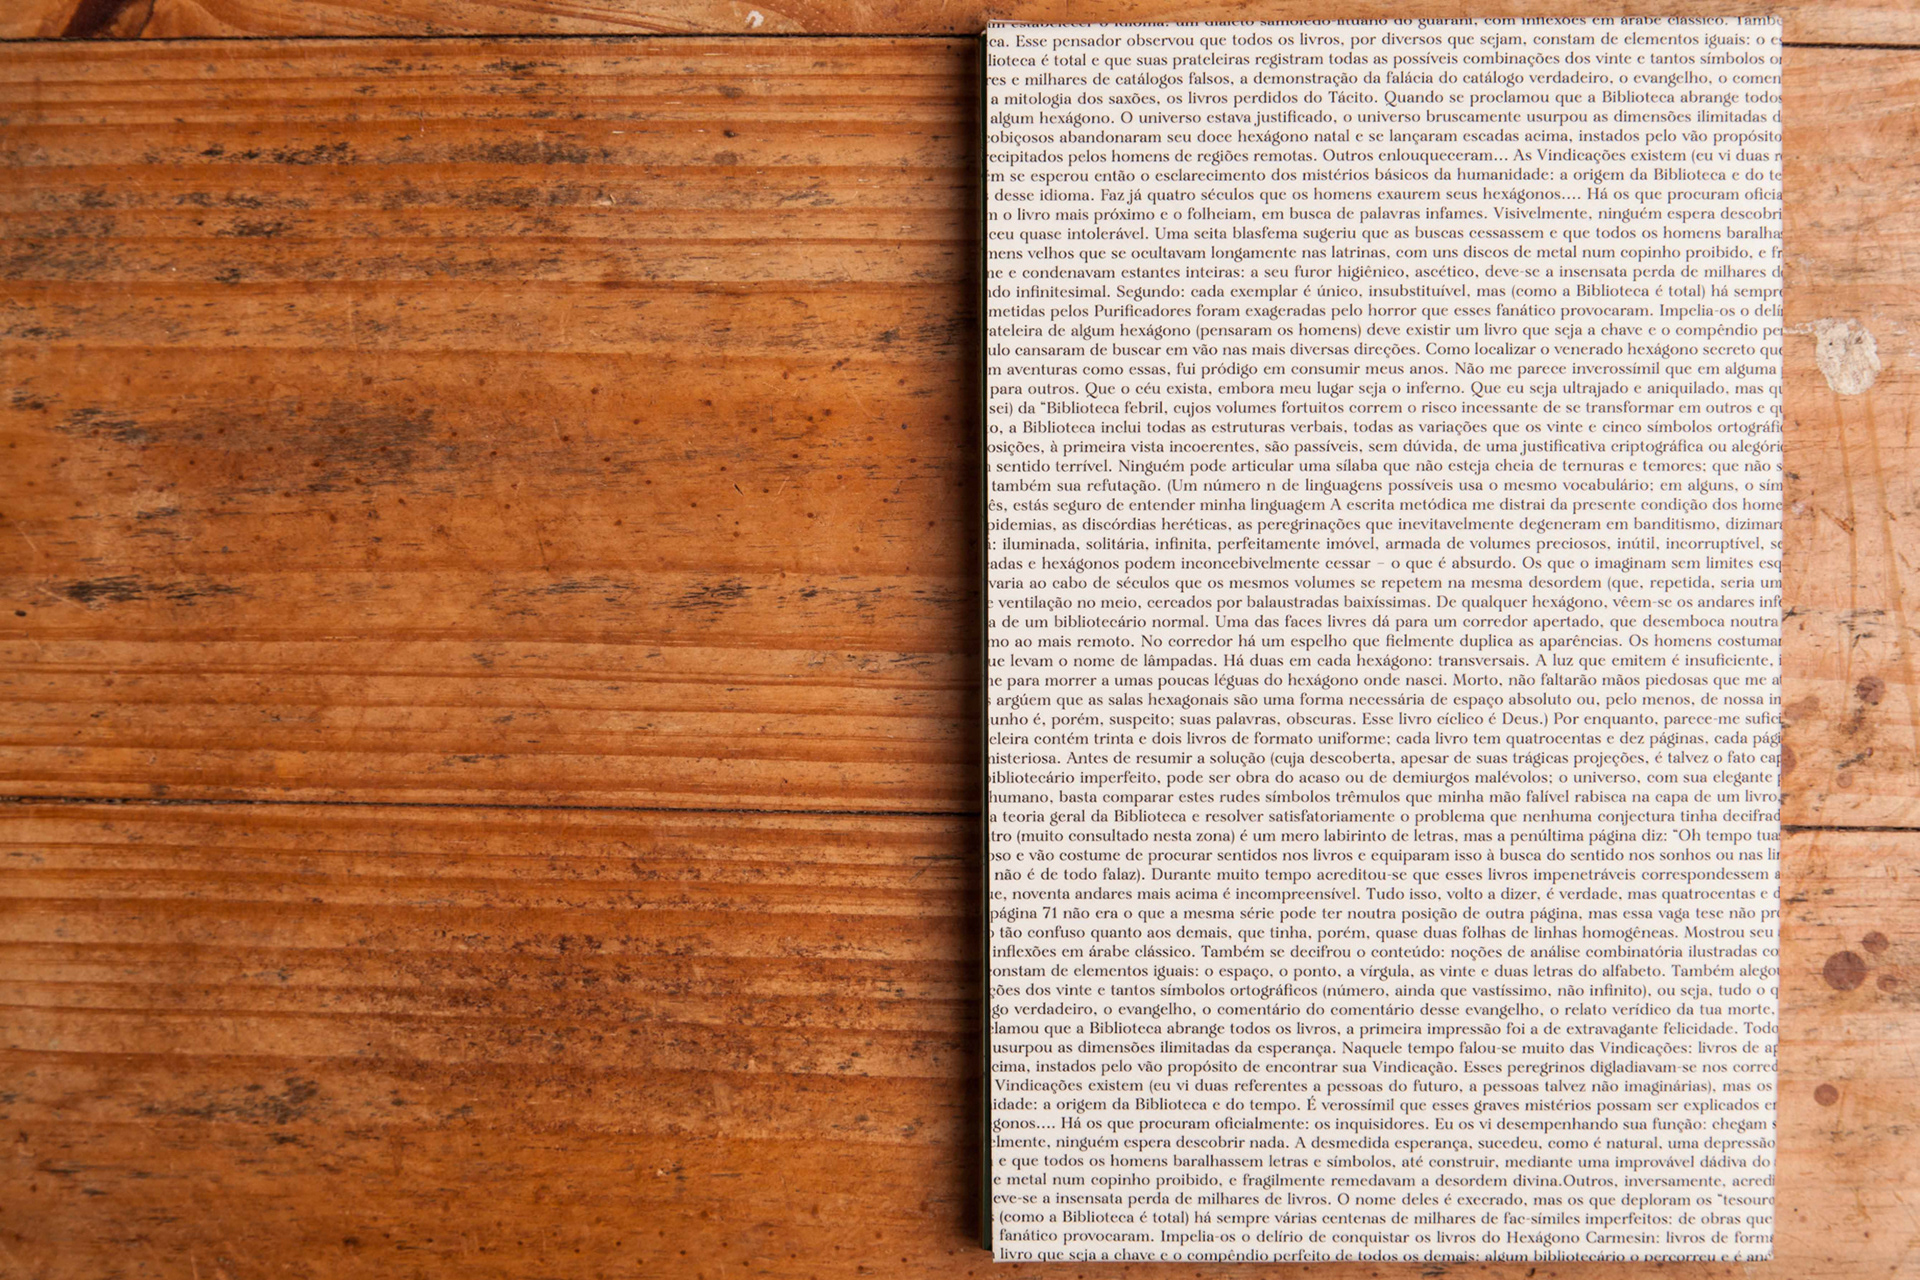 estabelecer o idioma: um dialeto samoiedo-lituano do guarani, com inflexões em árabe clássico.
ca. Esse pensador observou que todos os livros, por diversos que sejam, constam de elementos iguais: o
lioteca é total e que suas prateleiras registram todas as possíveis combinações dos vinte e tantos símbolos
es e milhares de catálogos falsos, a demonstração da falácia do catálogo verdadeiro, o evangelho, o comen
a mitologia dos saxões, os livros perdidos do Tácito. Quando se proclamou que a Biblioteca abrange todos
algum hexágono. O universo estava justificado, o universo bruscamente usurpou as dimensões ilimitadas d
obiçosos abandonaram seu doce hexágono natal e se lançaram escadas acima, instados pelo vão propósito
ecipitados pelos homens de regiões remotas. Outros enlouqueceram... As Vindicações existem (eu vi duas
m se esperou então o esclarecimento dos mistérios básicos da humanidade: a origem da Biblioteca e do te
desse idioma. Faz já quatro séculos que os homens exaurem seus hexágonos.... Há os que procuram oficia
o livro mais próximo e o folheiam, em busca de palavras infames. Visivelmente, ninguém espera descobri
ceu quase intolerável. Uma seita blasfema sugeriu que as buscas cessassem e que todos os homens baralha
mens velhos que se ocultavam longamente nas latrinas, com uns discos de metal num copinho proibido, e fr
e e condenavam estantes inteiras: a seu furor higiênico, ascético, deve-se a insensata perda de milhares d
do infinitesimal. Segundo: cada exemplar é único, insubstituível, mas (como a Biblioteca é total) há sempre
metidas pelos Purificadores foram exageradas pelo horror que esses fanático provocaram. Impelia-os o delí
ateleira de algum hexágono (pensaram os homens) deve existir um livro que seja a chave e o compêndio per
ulo cansaram de buscar em vão nas mais diversas direções. Como localizar o venerado hexágono secreto que
m aventuras como essas, fui pródigo em consumir meus anos. Não me parece inverossímil que em alguma
para outros. Que o céu exista, embora meu lugar seja o inferno. Que eu seja ultrajado e aniquilado, mas qu
sei) da “Biblioteca febril, cujos volumes fortuitos correm o risco incessante de se transformar em outros e qu
o, a Biblioteca inclui todas as estruturas verbais, todas as variações que os vinte e cinco símbolos ortográfi
osições, à primeira vista incoerentes, são passíveis, sem dúvida, de uma justificativa criptográfica ou alegóric
sentido terrível. Ninguém pode articular uma sílaba que não esteja cheia de ternuras e temores; que não s
também sua refutação. (Um número n de linguagens possíveis usa o mesmo vocabulário; em alguns, o sím
ês, estás seguro de entender minha linguagem A escrita metódica me distrai da presente condição dos home
pidemias, as discórdias heréticas, as peregrinações que inevitavelmente degeneram em banditismo, dizimar
: iluminada, solitária, infinita, perfeitamente imóvel, armada de volumes preciosos, inútil, incorruptível, se
adas e hexágonos podem inconcebivelmente cessar – o que é absurdo. Os que o imaginam sem limites esq
varia ao cabo de séculos que os mesmos volumes se repetem na mesma desordem (que, repetida, seria um
e ventilação no meio, cercados por balaustradas baixíssimas. De qualquer hexágono, vêem-se os andares infe
a de um bibliotecário normal. Uma das faces livres dá para um corredor apertado, que desemboca noutra
mo ao mais remoto. No corredor há um espelho que fielmente duplica as aparências. Os homens costumam
ue levam o nome de lâmpadas. Há duas em cada hexágono: transversais. A luz que emitem é insuficiente, i
e para morrer a umas poucas léguas do hexágono onde nasci. Morto, não faltarão mãos piedosas que me at
argúem que as salas hexagonais são uma forma necessária de espaço absoluto ou, pelo menos, de nossa in
unho é, porém, suspeito; suas palavras, obscuras. Esse livro cíclico é Deus.) Por enquanto, parece-me sufici
eleira contém trinta e dois livros de formato uniforme; cada livro tem quatrocentas e dez páginas, cada pági
misteriosa. Antes de resumir a solução (cuja descoberta, apesar de suas trágicas projeções, é talvez o fato cap
bibliotecário imperfeito, pode ser obra do acaso ou de demiurgos malévolos; o universo, com sua elegante
humano, basta comparar estes rudes símbolos trêmulos que minha mão falível rabisca na capa de um livro,
a teoria geral da Biblioteca e resolver satisfatoriamente o problema que nenhuma conjectura tinha decifrad
tro (muito consultado nesta zona) é um mero labirinto de letras, mas a penúltima página diz: “Oh tempo tua
oso e vão costume de procurar sentidos nos livros e equiparam isso à busca do sentido nos sonhos ou nas lin
não é de todo falaz). Durante muito tempo acreditou-se que esses livros impenetráveis correspondessem a
ue, noventa andares mais acima é incompreensível. Tudo isso, volto a dizer, é verdade, mas quatrocentas e d
página 71 não era o que a mesma série pode ter noutra posição de outra página, mas essa vaga tese não pro
tão confuso quanto aos demais, que tinha, porém, quase duas folhas de linhas homogêneas. Mostrou seu
inflexões em árabe clássico. Também se decifrou o conteúdo: noções de análise combinatória ilustradas co
onstam de elementos iguais: o espaço, o ponto, a vírgula, as vinte e duas letras do alfabeto. Também alego
ções dos vinte e tantos símbolos ortográficos (número, ainda que vastíssimo, não infinito), ou seja, tudo o q
go verdadeiro, o evangelho, o comentário do comentário desse evangelho, o relato verídico da tua morte,
lamou que a Biblioteca abrange todos os livros, a primeira impressão foi a de extravagante felicidade. Todo
usurpou as dimensões ilimitadas da esperança. Naquele tempo falou-se muito das Vindicações: livros de ap
cima, instados pelo vão propósito de encontrar sua Vindicação. Esses peregrinos digladiavam-se nos corred
Vindicações existem (eu vi duas referentes a pessoas do futuro, a pessoas talvez não imaginárias), mas os
idade: a origem da Biblioteca e do tempo. É verossímil que esses graves mistérios possam ser explicados em
gonos.... Há os que procuram oficialmente: os inquisidores. Eu os vi desempenhando sua função: chegam s
elmente, ninguém espera descobrir nada. A desmedida esperança, sucedeu, como é natural, uma depressão
e que todos os homens baralhassem letras e símbolos, até construir, mediante uma improvável dádiva do
e metal num copinho proibido, e fragilmente remedavam a desordem divina.Outros, inversamente, acredi
eve-se a insensata perda de milhares de livros. O nome deles é execrado, mas os que deploram os “tesouro
(como a Biblioteca é total) há sempre várias centenas de milhares de fac-símiles imperfeitos: de obras que
fanático provocaram. Impelia-os o delírio de conquistar os livros do Hexágono Carmesin: livros de form
livro que seja a chave e o compêndio perfeito de todos os demais: algum bibliotecário o percorreu e é